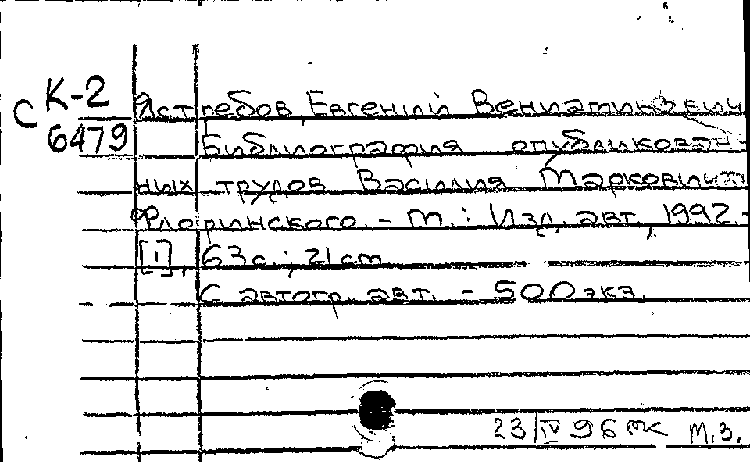 С К-2
6479
Ястребов, Евгений Вениаминович
Библиография опубликован-
ных трудов Василия Марковича
Флоринского. - М.: Изд. авт., 1992. -
[1], 63 с.; 21 cm
С автогр. авт. - 500 экз.
23/IV 96 М.З.